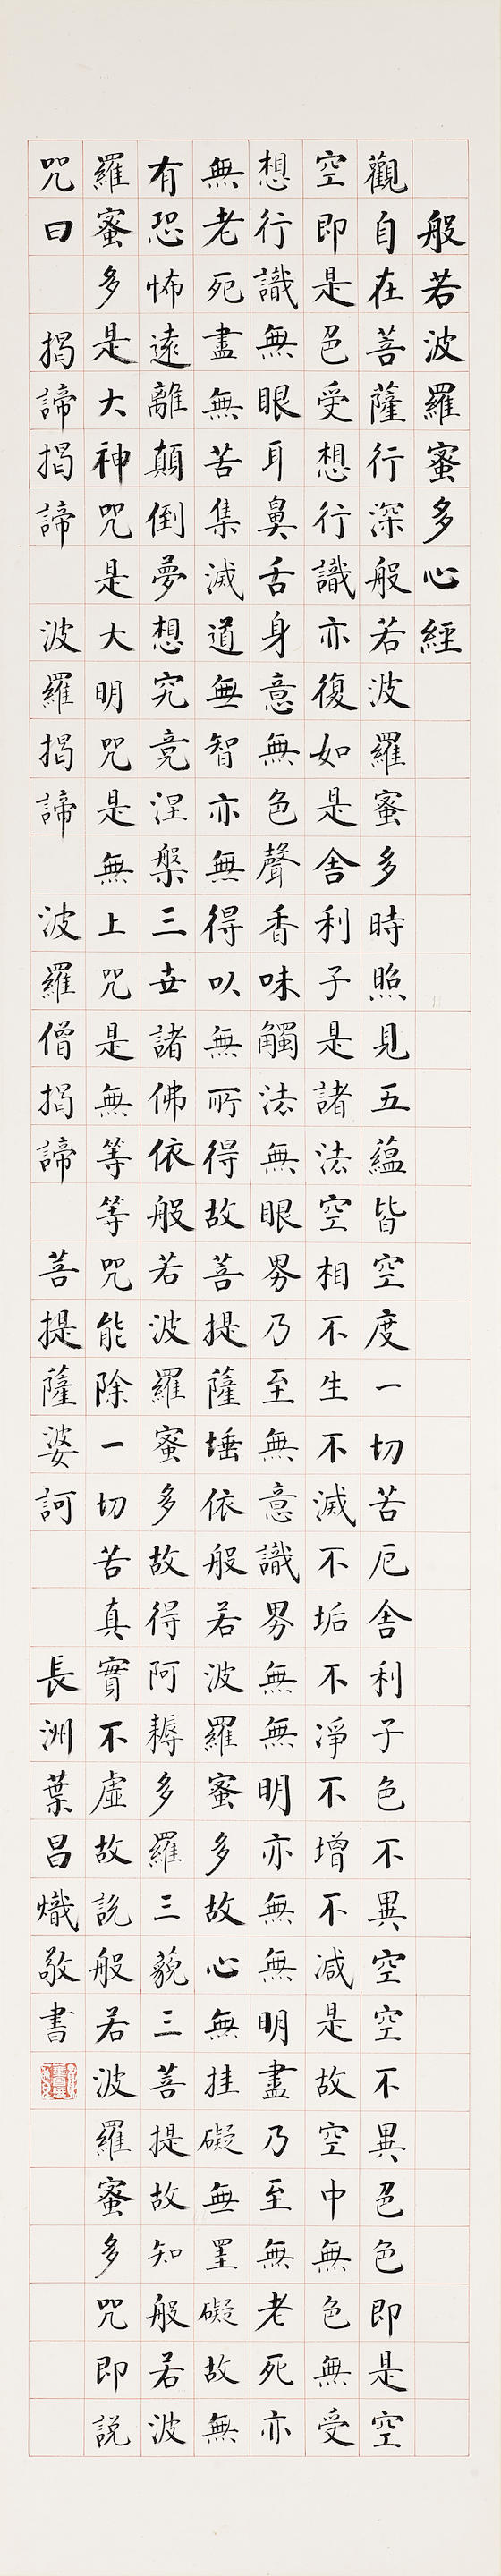 般若波羅蜜多心經
觀自在菩薩行深般若波羅蜜多時照見五蘊皆空度一切苦厄舍利子色不異空空不異色色即是空
空即是色受想行識亦復如是舍利子是諸法空相不生不滅不垢不淨不增不減是故空中無色無受
想行識無眼耳鼻舌身意無色聲香味觸法無眼界乃至無意識界無無明亦無無明盡乃至無老死亦
無老死盡無苦集滅道無智亦無得以無所得故菩提薩埵依般若波羅蜜多故心無挂礙無罣礙故無
有恐怖遠離顛倒夢想究竟涅槃三世諸佛依般若波羅蜜多故得阿耨多羅三藐三菩提故知般若波
羅蜜多是大神咒是大明咒是無上咒是無等等咒能除一切苦真實不虛故說般若波羅蜜多咒即說
咒曰 揭諦揭諦 波羅揭諦 波羅僧揭諦 菩提薩婆訶 長洲葉昌熾敬書